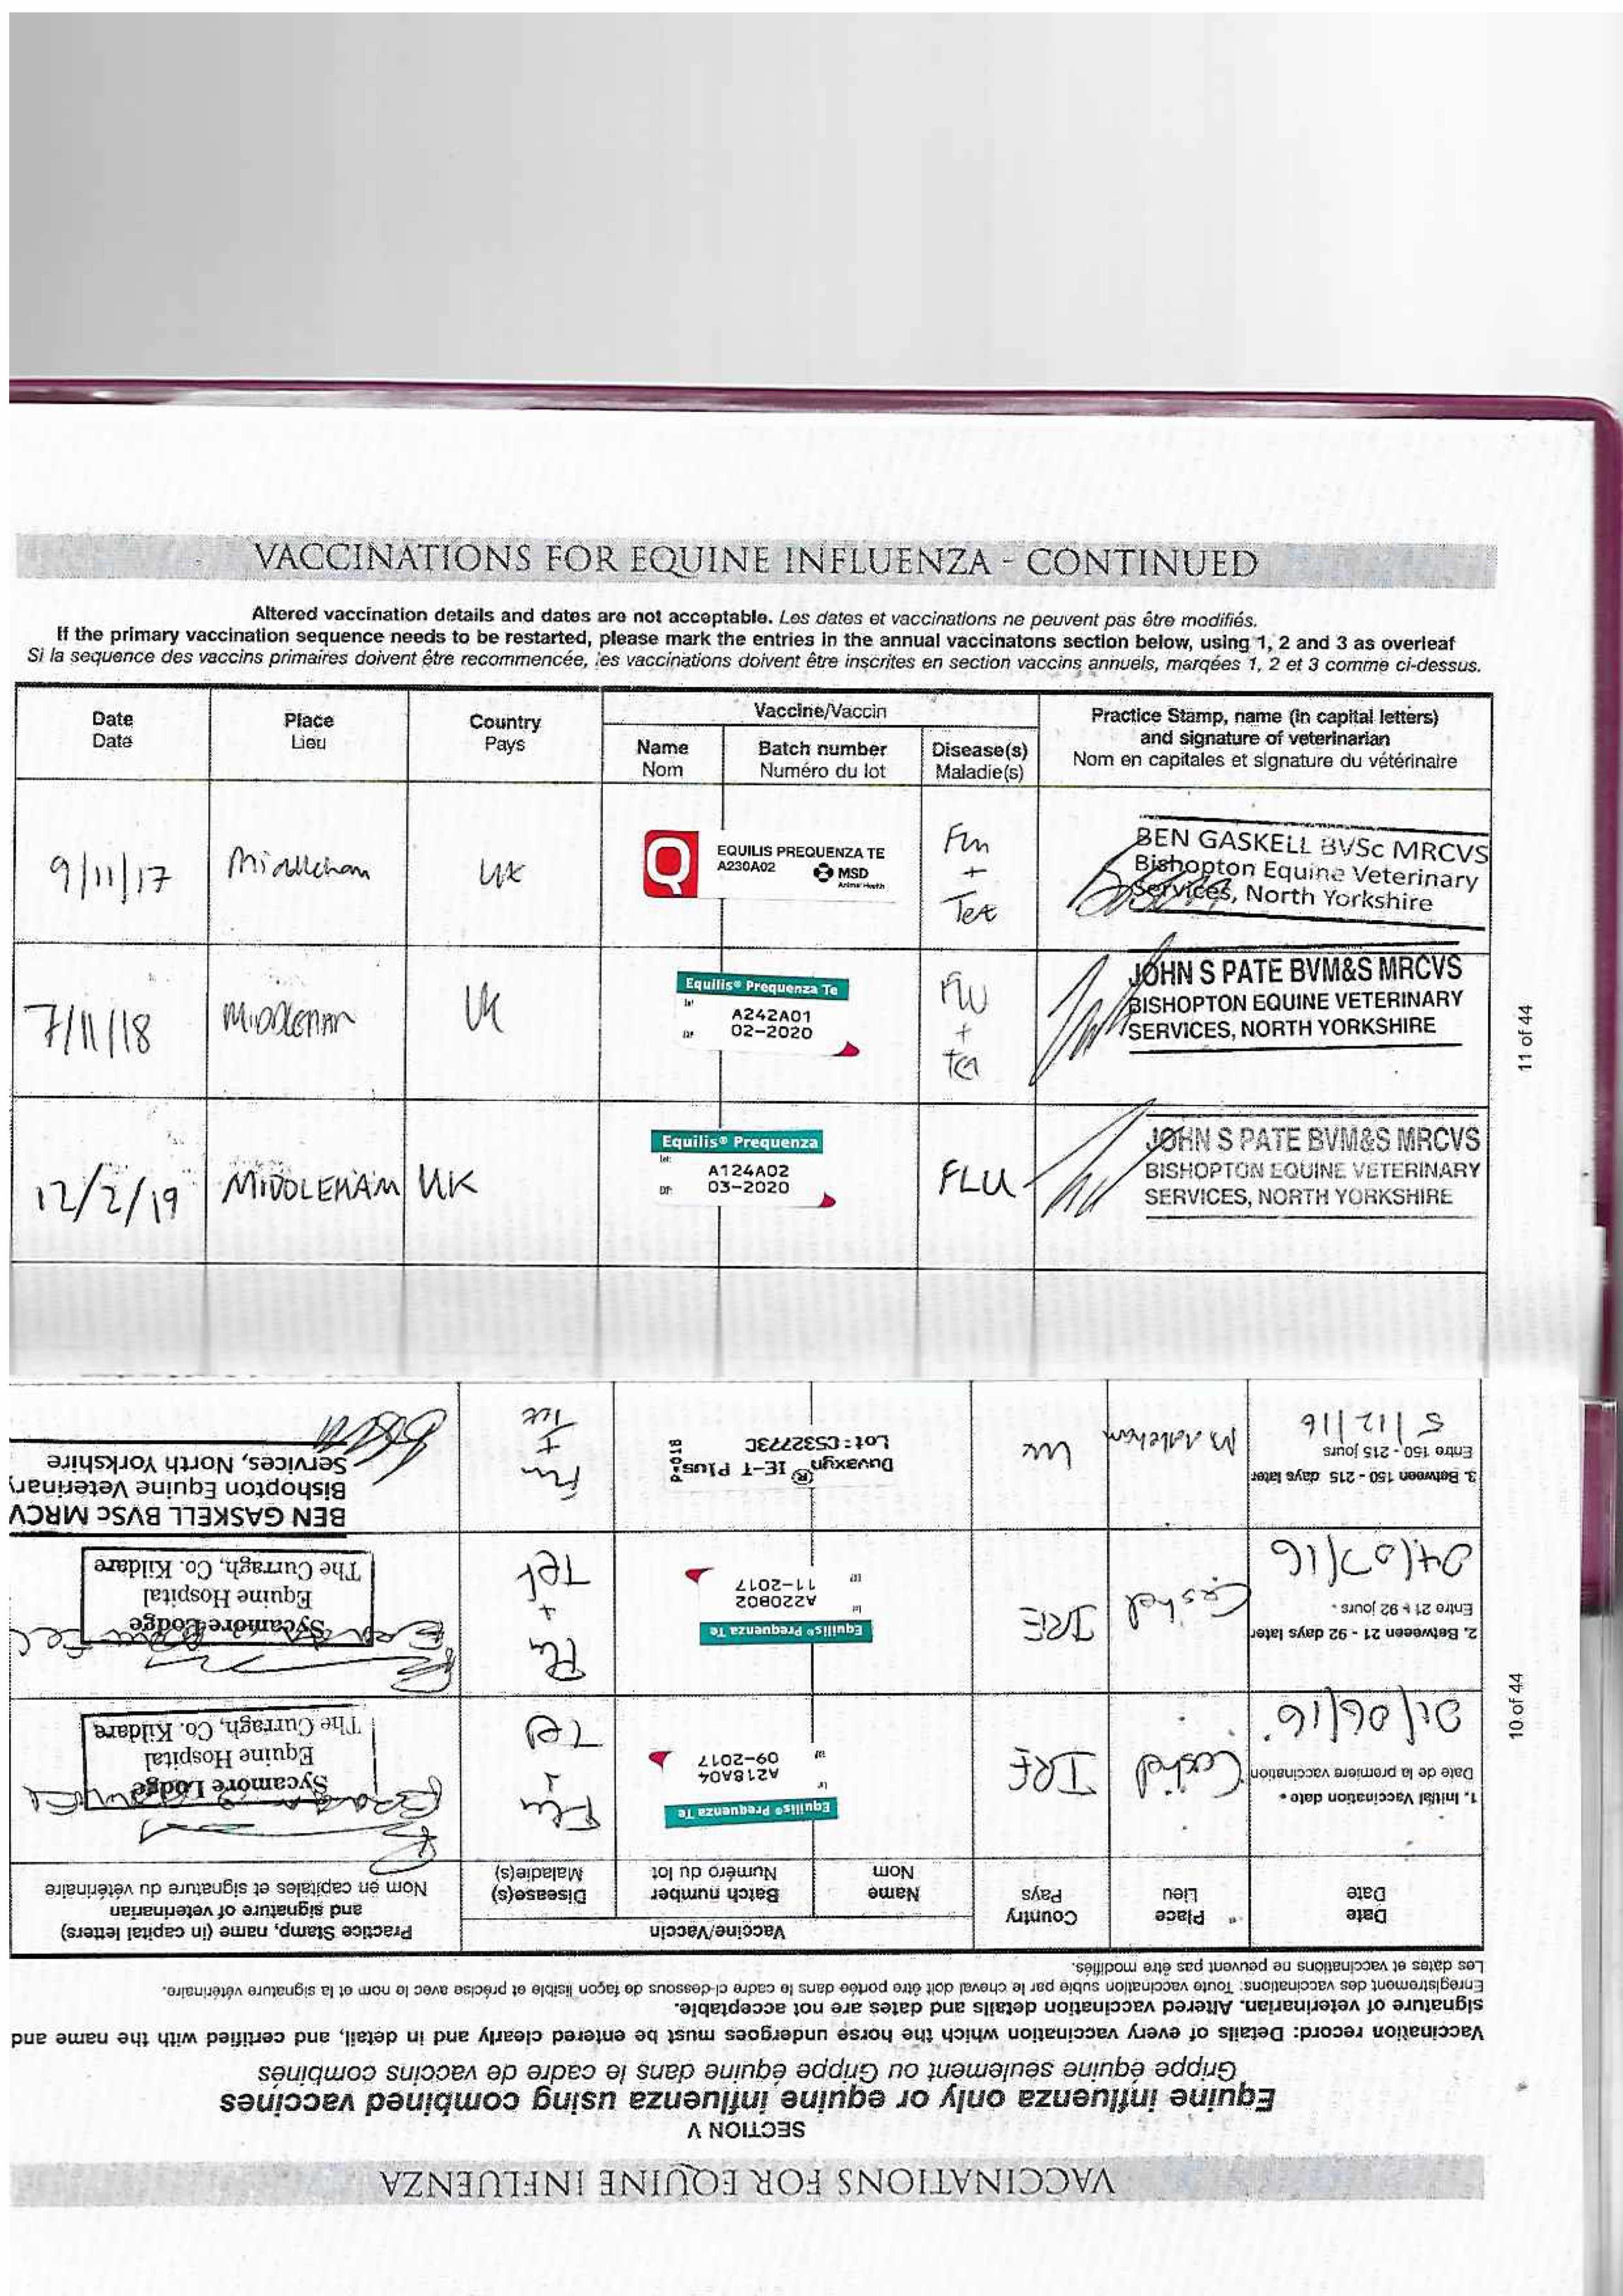 VACCINATIONS FOR EQUINE INFLUENZA - CONTINUED
Altered vaccination details and dates are not acceptable. Les dates et vaccinations ne peuvent pas être modifiés.
If the primary vaccination sequence needs to be restarted, please mark the entries in the annual vaccinatons section below, using 1, 2 and 3 as overleaf
Si la sequence des vaccins primaires doivent être recommencée, les vaccinations doivent être inscrites en section vaccins annuels, marqées 1, 2 et 3 comme ci-dessus.
Date
Date
Place
Lieu
Country
Pays
Vaccine/Vaccin
Name
Nom
Batch number
Numéro du lot
Disease(s)
Maladie(s)
Practice Stamp, name (in capital letters)
and signature of veterinarian
Nom en capitales et signature du vétérinaire
9/11/17
Middleham
UK
Q
EQUILIS PREQUENZA TE
A230A02
MSD
Animal Health
Flu
+
Tet
BEN GASKELL BVSc MRCVS
Bishopton Equine Veterinary
Services, North Yorkshire
7/11/18
MIDDLEHAM
UK
Equilis® Prequenza Te
A242A01
02-2020
FLU
+
Tet
JOHN S PATE BVM&S MRCVS
BISHOPTON EQUINE VETERINARY
SERVICES, NORTH YORKSHIRE
12/2/19
MIDDLEHAM
UK
Equilis® Prequenza
lot:
A124A02
03-2020
FLU
JOHN S PATE BVM&S MRCVS
BISHOPTON EQUINE VETERINARY
SERVICES, NORTH YORKSHIRE
11 of 44
VACCINATIONS FOR EQUINE INFLUENZA
SECTION V
Equine influenza only or equine influenza using combined vaccines
Grippe équine seulement ou Grippe équine dans le cadre de vaccins combinés
Vaccination record: Details of every vaccination which the horse undergoes must be entered clearly and in detail, and certified with the name and
signature of veterinarian. Altered vaccination details and dates are not acceptable.
Enregistrement des vaccinations: Toute vaccination subie par le cheval doit être portée dans le cadre ci-dessous de façon lisible et précise avec le nom et la signature vétérinaire.
Les dates et vaccinations ne peuvent pas être modifiés.
Date
Date
Place
Lieu
Country
Pays
Vaccine/Vaccin
Name
Nom
Batch number
Numéro du lot
Disease(s)
Maladie(s)
Practice Stamp, name (in capital letters)
and signature of veterinarian
Nom en capitales et signature du vétérinaire
1. Initial Vaccination date
Date de la premiere vaccination
01/06/16
Cashel
IRE
Equilis® Prequenza Te
A218A04
09-2017
Flu
+
Tet
Sycamore Lodge
Equine Hospital
The Curragh, Co. Kildare
2. Betweeen 21 - 92 days later
Entre 21 + 92 jours
04/07/16
Cashel
IRE
Equilis® Prequenza Te
A220B02
11-2017
Flu
+
Tet
Sycamore Lodge
Equine Hospital
The Curragh, Co. Kildare
3. Between 150 - 215 days later
Entre 150 - 215 jours
5/12/16
Middleham
UK
Duvaxyn® IE-T Plus
Lot: C532773C
P-018
Flu
+
Tet
BEN GASKELL BVSc MRCV
Bishopton Equine Veterinary
Services, North Yorkshire
10 of 44